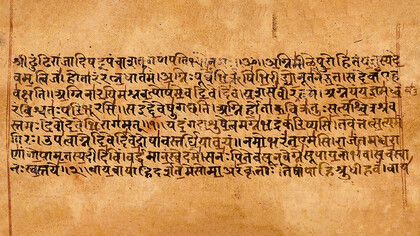 श्रीढुंढिराजादिषट्पंचाशद्गणपतिभ्योनमः॥ॐ॥अग्निमीळेपुरोहितंयज्ञस्यदे
वमृत्विजं।होतारंरत्नधातमं॥अग्निःपूर्वेभिर्ऋषिभिरीड्योनूतनैरुत।सदेवाँएह
वक्षति॥अग्निनारयिमश्नवत्पोषमेवदिवेदिवे।यशसंवीरवत्तमं॥अग्नेयंयज्ञमध्व
रंविश्वतःपरिभूरसि।सइद्देवेषुगच्छति॥अग्निर्होताकविक्रतुःसत्यश्चित्रश्रव
स्तमः।देवोदेवेभिरागमत्॥१॥यदंगदाशुषेत्वमग्नेभद्रंकरिष्यसि।तवेत्तत्सत्यमं
गिरः॥उपत्वाग्नेदिवेदिवेदोषावस्तर्धियावयं।नमोभरंतएमसि॥राजंतमध्वरा
णांगोपामृतस्यदीदिविं।वर्धमानंस्वेदमे॥सनःपितेवसूनवेग्नेसूपायनोभव।सचस्वा
नःस्वस्तये॥२॥वायवायाहिदर्शतेमेसोमाअरंकृताः।तेषांपाहिश्रुधीहवं॥वाय